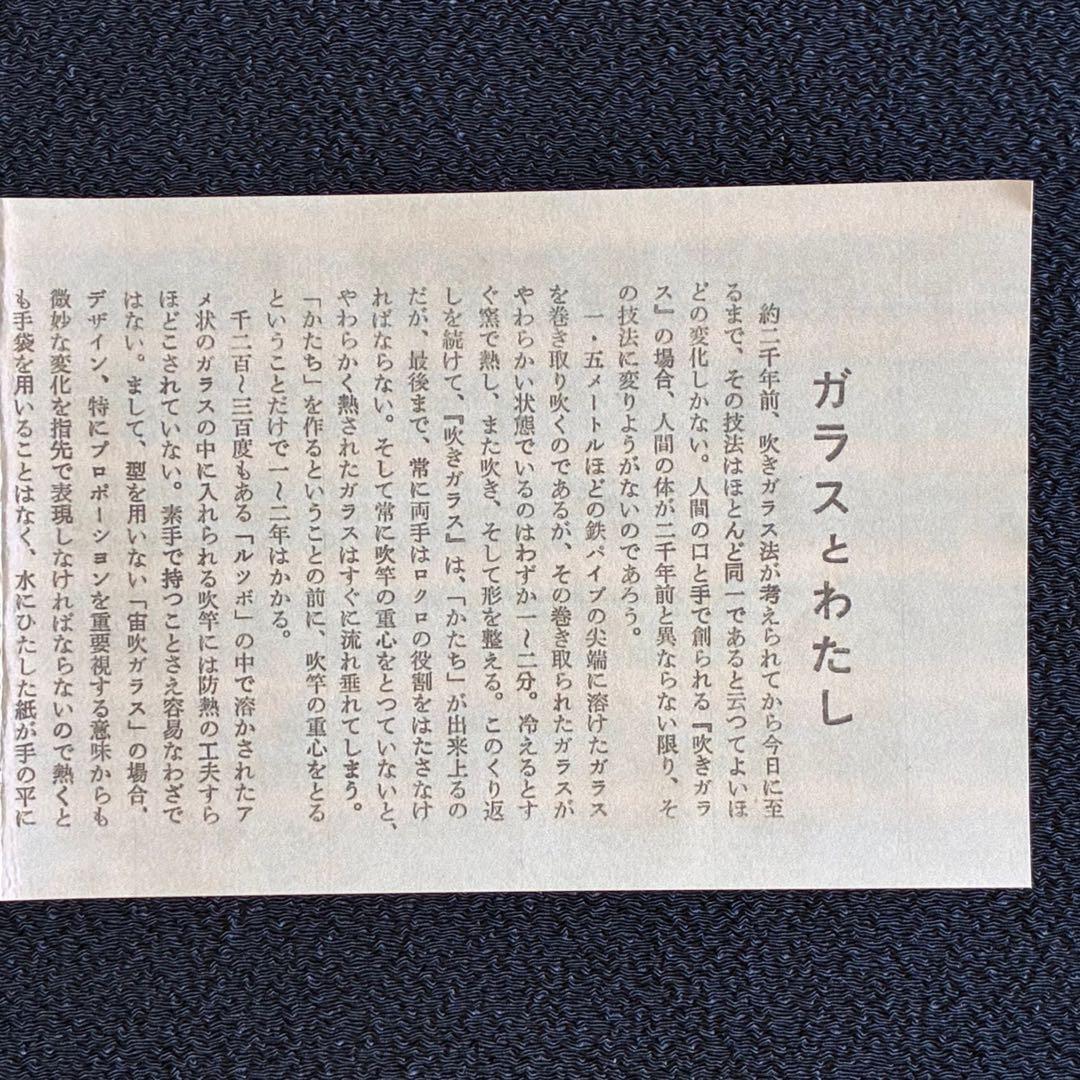 ガラスとわたし
約二千年前、吹きガラス法が考えられてから今日に至
るまで、その技法はほとんど同一であると云つてよいほ
どの変化しかない。人間の口と手で創られる『吹きガラ
ス』の場合、人間の体が二千年前と異ならない限り、そ
の技法に変りようがないのであろう。
一・五メートルほどの鉄パイプの尖端に溶けたガラス
を巻き取り吹くのであるが、その巻き取られたガラスが
やわらかい状態でいるのはわずか一〜二分。冷えるとす
ぐ窯で熱し、また吹き、そして形を整える。このくり返
しを続けて、『吹きガラス』は、「かたち」が出来上るの
だが、最後まで、常に両手はロクロの役割をはたさなけ
ればならない。そして常に吹竿の重心をとつていないと、
やわらかく熱されたガラスはすぐに流れ垂れてしまう。
「かたち」を作るということの前に、吹竿の重心をとる
ということだけで一〜二年はかかる。
千二百〜三百度もある「ルツボ」の中で溶かされたア
メ状のガラスの中に入れられる吹竿には防熱の工夫すら
ほどこされていない。素手で持つことさえ容易なわざで
はない。まして、型を用いない「宙吹ガラス」の場合、
デザイン、特にプロポーションを重要視する意味からも
微妙な変化を指先で表現しなければならないので熱くと
も手袋を用いることはなく、水にひたした紙が手の平に